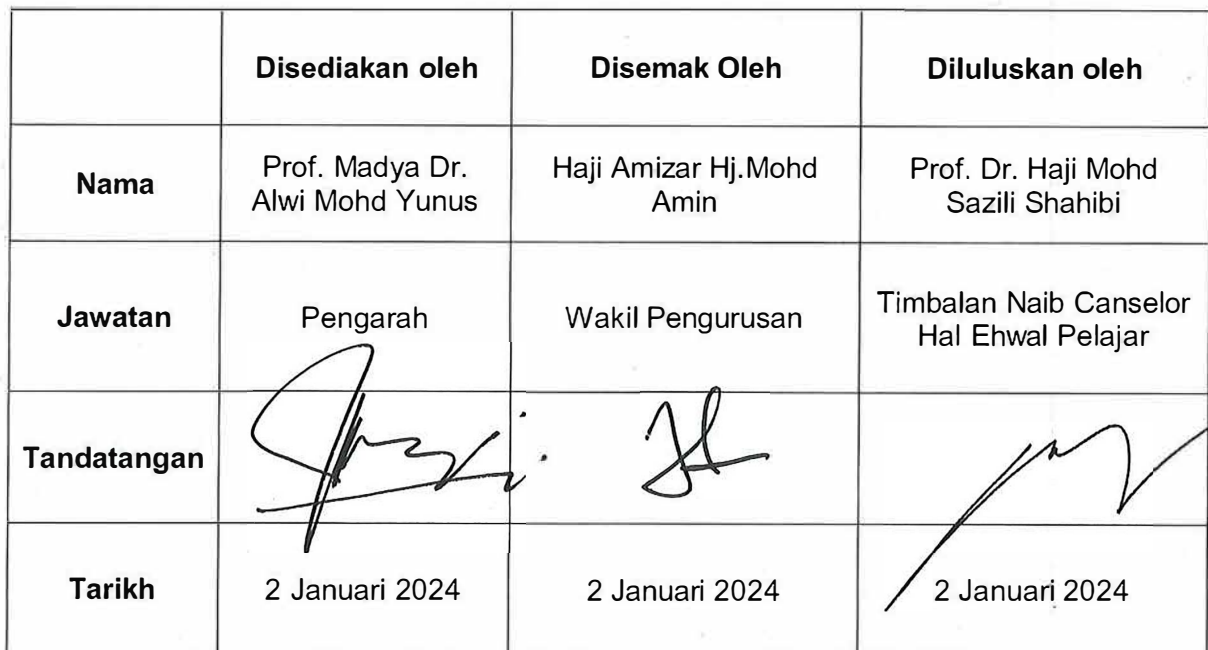 Disediakan oleh
Disemak Oleh
Diluluskan oleh
Nama
Prof. Madya Dr.
Alwi Mohd Yunus
Haji Amizar Hj.Mohd
Amin
Prof. Dr. Haji Mohd
Sazili Shahibi
Jawatan
Pengarah
Wakil Pengurusan
Timbalan Naib Canselor
Hal Ehwal Pelajar
Tandatangan
Tarikh
2 Januari 2024
2 Januari 2024
2 Januari 2024